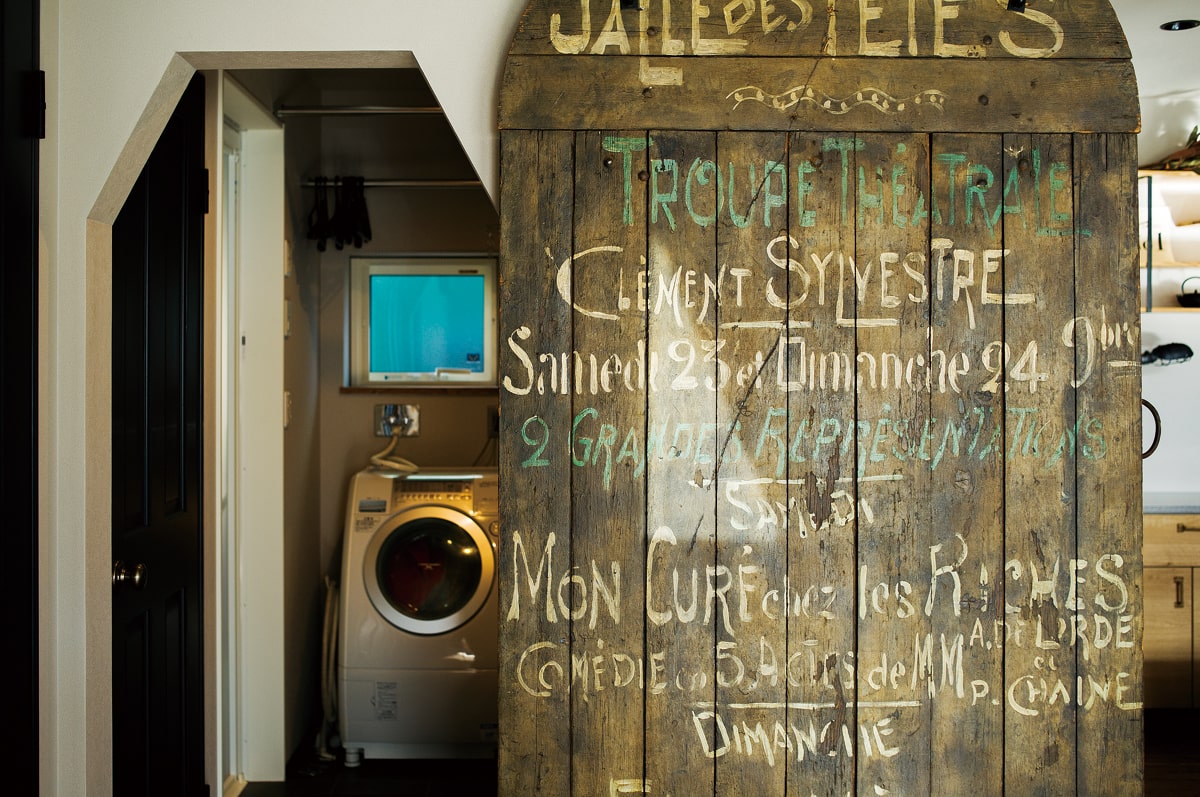 SALLE DES FÊTES
TROUPE THÉATRALE
CLÉMENT SYLVESTRE
Samedi 23 et Dimanche 24 9bre
2 GRANDES REPRÉSENTATIONS
SAMEDI
MON CURÉ chez les RICHES
COMÉDIE en 5 ACTES de MM A. DE LORDE
et P. CHAINE
DIMANCHE